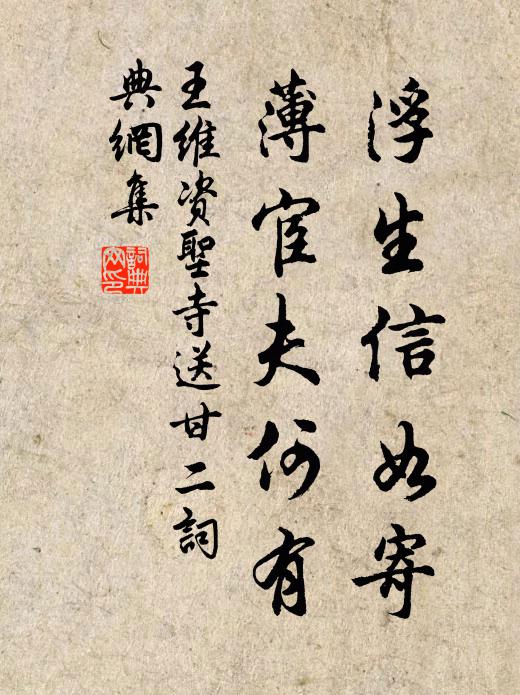 浮生信如寄
薄宦夫何有
王維资聖寺送甘二詞
典網集
詞典